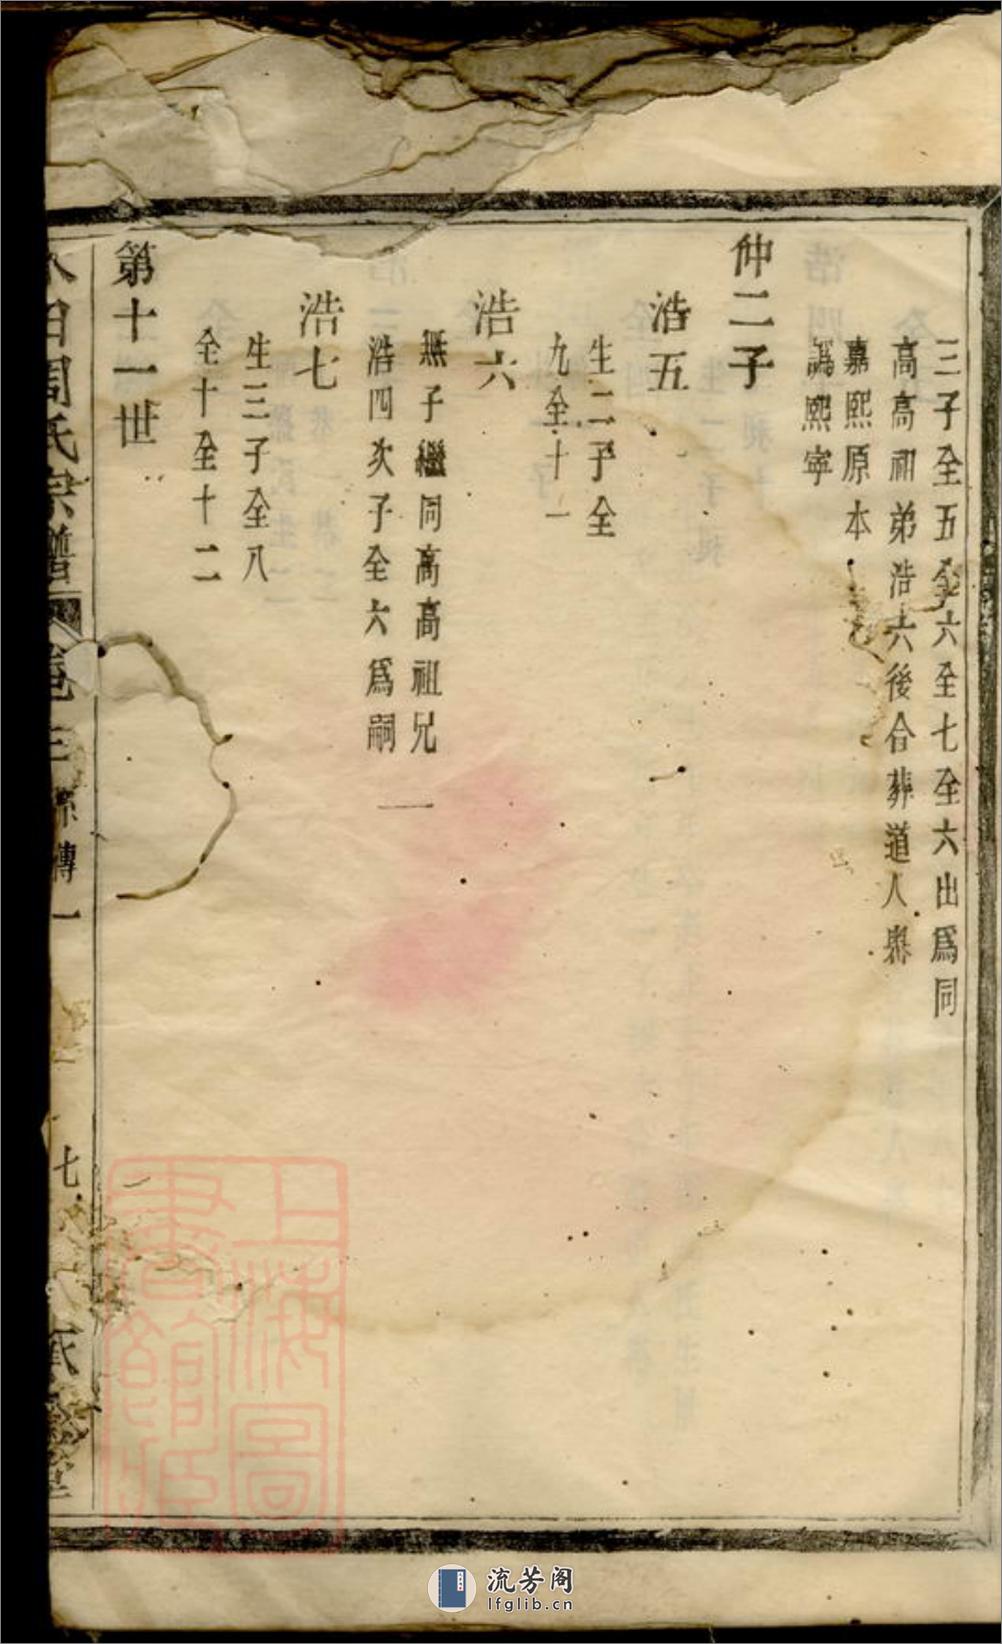 三子全五全六全七全六出爲同
高高祖弟浩六後合葬道人𡊨
嘉熙原本
譌熙寧
仲二子
浩五
生二子全
九全十一
浩六
無子繼同高高祖兄
浩四次子全六爲嗣
浩七
生三子全八
全十全十二
第十一世
田周氏宗譜
卷三
傳一
七
上海圖
書館藏
流芳阁
lfglib.cn